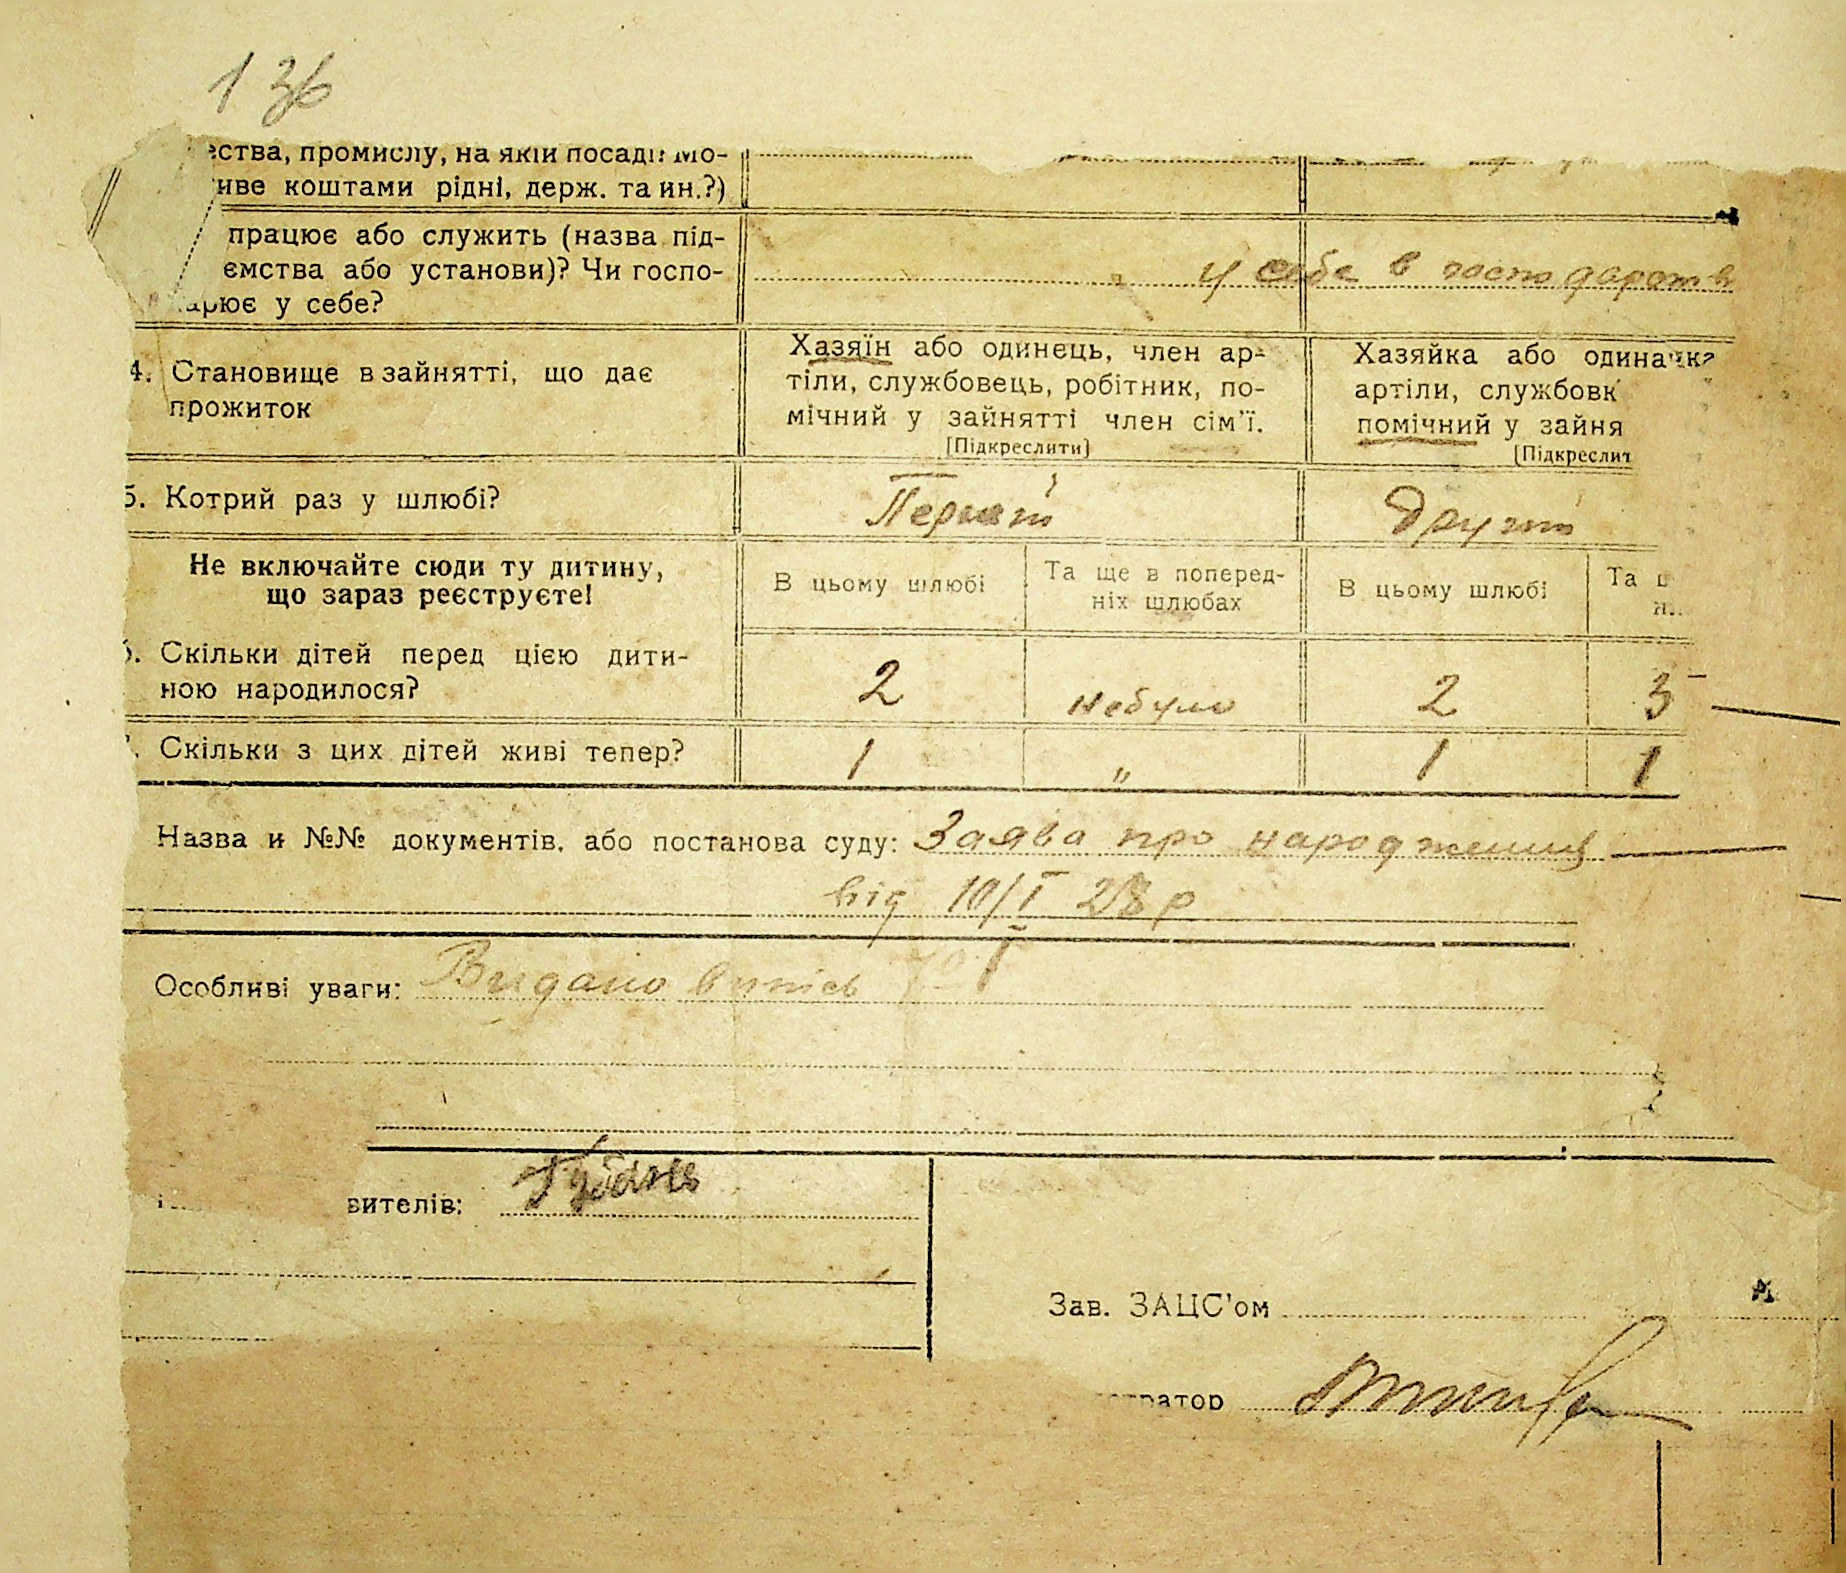 136
ства, промислу, на якій посаді? Мо-
иве коштами рідні, держ. та ин.?)
працює або служить (назва під-
ємства або установи)? Чи госпо-
арює у себе?
у себе в господарств
4. Становище в зайнятті, що дає
прожиток
Хазяїн або одинець, член ар-
тіли, службовець, робітник, по-
мічний у зайнятті член сім'ї.
[Підкреслити]
Хазяйка або одиначка
артіли, службовк
помічний у зайня
[Підкреслит
5. Котрий раз у шлюбі?
Перший
Другий
Не включайте сюди ту дитину,
що зараз реєструєте!
В цьому шлюбі
Та ще в поперед-
ніх шлюбах
В цьому шлюбі
Та
6. Скільки дітей перед цією дити-
ною народилося?
2
небуло
2
3
Скільки з цих дітей живі тепер?
1
"
1
1
Назва и №№ документів, або постанова суду: Заява про народження
від 10/I 28 р
Особливі уваги: Видано випись
вителів:
Зав. ЗАЦС'ом
ратор